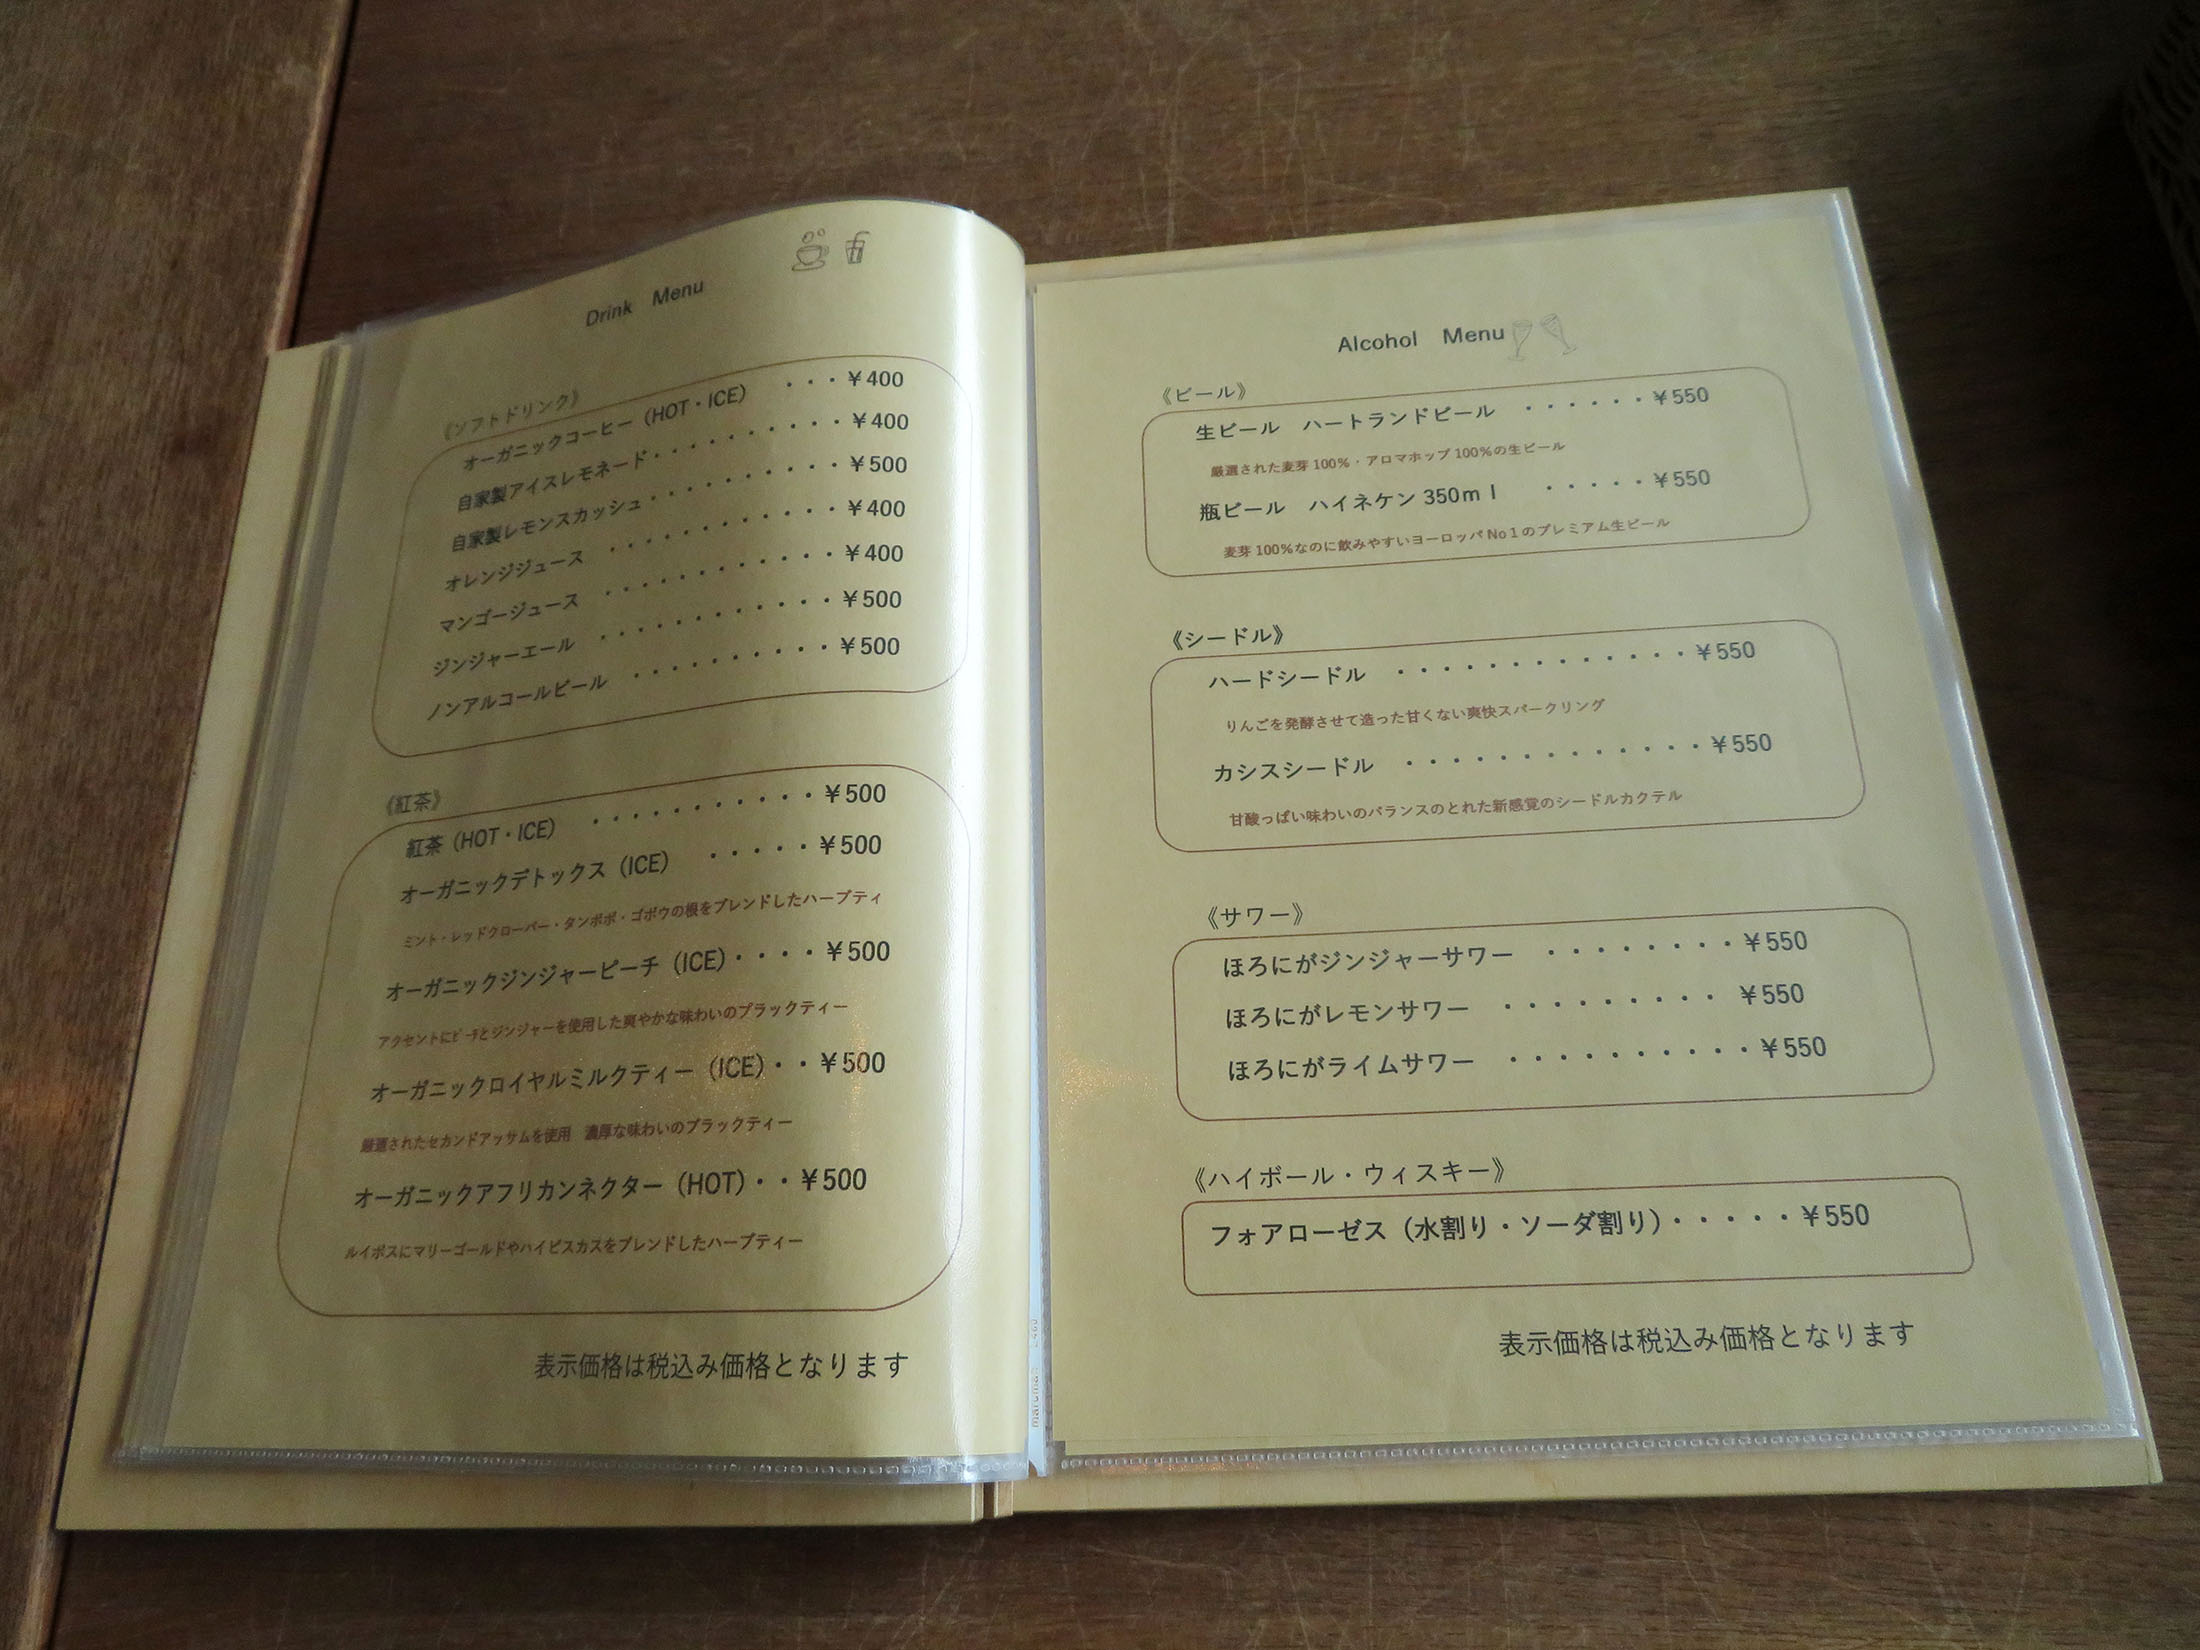 Drink Menu
《ソフトドリンク》
オーガニックコーヒー（HOT・ICE） ・・・¥400
自家製アイスレモネード・・・・・・・・・¥400
自家製レモンスカッシュ・・・・・・・・・¥500
オレンジジュース ・・・・・・・・・・・¥400
マンゴージュース ・・・・・・・・・・・¥400
ジンジャーエール ・・・・・・・・・・・¥500
ノンアルコールビール ・・・・・・・・・¥500
《紅茶》
紅茶（HOT・ICE） ・・・・・・・・・・¥500
オーガニックデトックス（ICE） ・・・・・¥500
ミント・レッドクローバー・タンポポ・ゴボウの根をブレンドしたハーブティ
オーガニックジンジャーピーチ（ICE）・・・・¥500
アクセントにﾋﾟｰﾁとジンジャーを使用した爽やかな味わいのブラックティー
オーガニックロイヤルミルクティー（ICE）・・¥500
厳選されたセカンドアッサムを使用 濃厚な味わいのブラックティー
オーガニックアフリカンネクター（HOT）・・¥500
ルイボスにマリーゴールドやハイビスカスをブレンドしたハーブティー
表示価格は税込み価格となります
Alcohol Menu
《ビール》
生ビール ハートランドビール ・・・・・・¥550
厳選された麦芽100%・アロマホップ100%の生ビール
瓶ビール ハイネケン350ｍｌ ・・・・・¥550
麦芽100%なのに飲みやすいヨーロッパNo1のプレミアム生ビール
《シードル》
ハードシードル ・・・・・・・・・・・・・¥550
りんごを発酵させて造った甘くない爽快スパークリング
カシスシードル ・・・・・・・・・・・・・¥550
甘酸っぱい味わいのバランスのとれた新感覚のシードルカクテル
《サワー》
ほろにがジンジャーサワー ・・・・・・・・¥550
ほろにがレモンサワー ・・・・・・・・・ ¥550
ほろにがライムサワー ・・・・・・・・・・¥550
《ハイボール・ウィスキー》
フォアローゼス（水割り・ソーダ割り）・・・・・¥550
表示価格は税込み価格となります